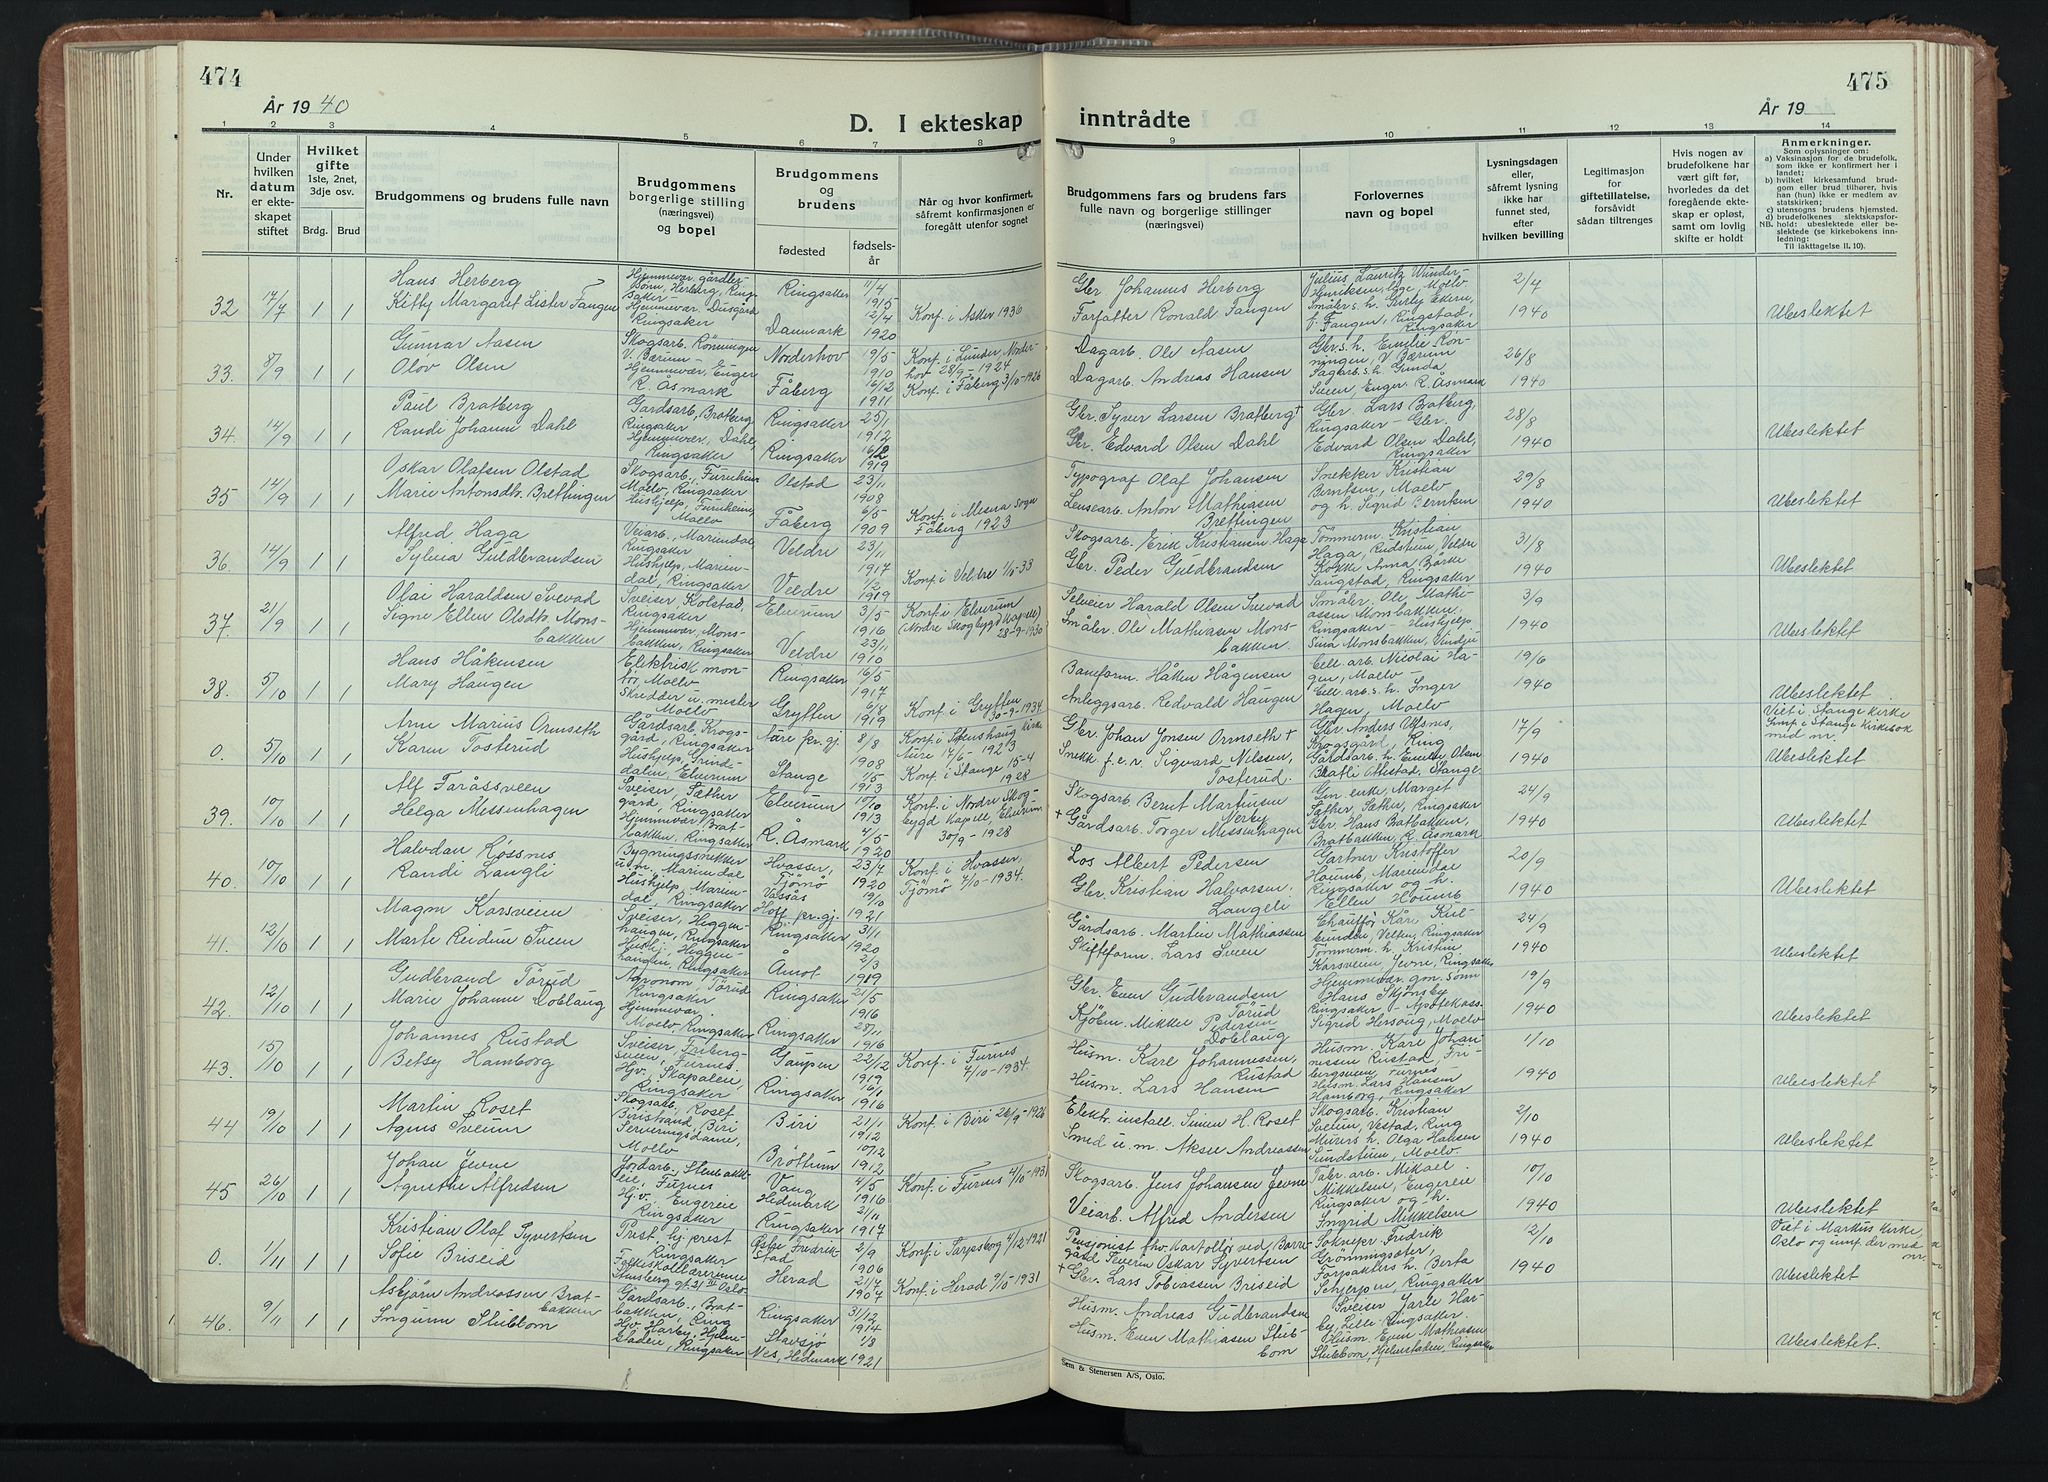 474
År 1940
D. I ekteskap
1 2 3 4 5 6 7 8
Nr.
Under hvilken datum er ekteskapet stiftet
Hvilket gifte 1ste, 2net, 3dje osv.
Brdg. Brud
Brudgommens og brudens fulle navn
Brudgommens borgerlige stilling (næringsvei) og bopel
Brudgommens og brudens
fødested
fødselsår
Når og hvor konfirmert, såfremt konfirmasjonen er foregått utenfor sognet
32 17/7 1 1
Hans Herberg
Kitty Margaret Lister Fangen
Ringsaker 11/4 1915
Danmark 12/4 1920
Konf. i Asker 1936
33. 8/9 1 1
Gunnar Aasen
Olöv Olsen
Norderhov 19/5 1910
Fåberg 16/12 1911
Konf. i Lunder, Norderhov 28/9-1924
Konf. i Fåberg 3/10-1926
34. 14/9 1 1
Paul Bratberg
Randi Johanne Dahl
Gårdsarb., Bratberg, Ringsaker
Hjemmevær., Dahl, Ringsaker
Ringsaker 25/1 1912
Ringsaker 16/12 1919
35 14/9 1 1
Oskar Olafsen Olstad
Marie Antonsdtr. Brettingen
Skogsarb., Furuheim, Moelv, Ringsaker
Hushjelp, Furuheim, Moelv
Olstad 23/11 1908
Fåberg 6/5 1909
Konf. i Mesna sogn Fåberg 1923
36. 14/9 1 1
Alfred Haga
Sylvia Guldbrandsen
Veiarb., Mariendal, Ringsaker
Hushjelp, Mariendal, Ringsaker
Veldre 23/11 1917
Veldre 1/2 1919
Konf. i Veldre 1/10-33
37. 21/9 1 1
Olai Haraldsen Svevad
Signe Ellen Olsdtr. Monsbakken
Sveiser, Kolstad, Ringsaker
Hjemmevær, Monsbakken, Ringsaker
Elverum 3/5 1916
Veldre 23/11 1910
Konf. i Elverum (Nordre Skogbygd kapell) 28-9-1930
38. 5/10 1 1
Hans Håkensen
Mary Haugen
Elektrisk montör, Moelv
Skredder u. mester Moelv
Ringsaker 16/5 1917
Grytten 6/8 1919
Konf. i Grytten 30-9-1934
0. 5/10 1 1
Arne Marius Ormseth
Karen Tosterud
Gårdsarb. Krogsgård, Ringsaker
Hushjelp, Grundsdalen, Elverum
8/8 1908
Stange 1/5 1913
Konf. i Stange 15-4 1928
39. 10/10 1 1
Alf Faråssveen
Helga Messenhagen
Sveiser, Sæther gård, Ringsaker
Hjemmevær. Bratbakken, Ringsaker
Elverum 10/10 1913
R. Åsmark 4/5 1920
Konf. i Nordre Skogbygd Kapell, Elverum 30/9-1928
40. 10/10 1 1
Halvdan Røssnes
Randi Langli
Bygningssnekker u.m., Mariendal
Hushjelp, Mariendal, Ringsaker
Hvasser, Tjömö 23/7 1920
Vassås Hoff pr.gj. 19/10 1921
Konf. i Hvasser, Tjömö 7/10-1934.
41. 12/10 1 1
Magne Karsveien
Marte Reidun Sveen
Sveiser, Heggenhaugen, Ringsaker
Hushj., Heggenhaugen, Ringsaker
Ringsaker 31/1 1920
Åmot 2/3 1919
42. 12/10 1 1
Gudbrand Törud
Marie Johanne Doblaug
Agronom, Törud Ringsaker
Hjemmevær. Moelv, Ringsaker
Ringsaker 21/5 1916
Ringsaker 28/11 1916
43. 15/10 1 1
Johannes Rustad
Betsy Hamborg
Sveiser, Fribergsveen, Furnes
Hjv., Skapalen, Ringsaker
Gaupen 22/12 1919
Ringsaker 16/1 1916
Konf. i Furnes 4/10-1934.
44 19/10 1 1
Martin Roset
Agnes Sveum
Skogsarb., Roset Biristrand, Biri
Serveringsdame, Moelv
Biri 21/1 1912
Brøttum 10/2 1912
Konf. i Biri 26/9-1926
45 26/10 1 1
Johan Jevne
Agnethe Alfredsen
Hjv., Engereie Ringsaker
Vang Hedmark 4/5 1916
Ringsaker 2/11 1917
Konf. i Furnes 4/10-1931
0. 1/11 1 1
Kristian Olaf Syvertsen
Sofie Briseid
Prest, hj. prest Ringsaker
Folkeskolelærerinne Stensberg gt. 31 Oslo
Østre Fredrikstad 2/9 1906
Herad 21/7 1904
Konf. i Sarpsborg 4/12-1921
Konf. i Herad 9/10-1931
46. 9/11 1 1
Asbjörn Andreassen Bratbakken
Ingunn Stubbom
Gårdsarb., Bratbakken, Ring
Ringsaker 31/12 1914
Stavsjö Nes, Hedmark 1/3 1921
475
År 19
inntrådte
9 10 11 12 13 14
Brudgommens fars og brudens fars fulle navn og borgerlige stillinger (næringsvei)
Forlovernes navn og bopel
Lysningsdagen eller, såfremt lysning ikke har funnet sted, efter hvilken bevilling
Legitimasjon for giftetillatelse, forsåvidt sådan tiltrenges
Hvis nogen av brudefolkene har vært gift før, hvorledes da det foregående ekteskap er opløst, samt om lovlig skifte er holdt
Anmerkninger.
Som oplysninger om:
a) Vaksinasjon for de brudefolk, som ikke er konfirmert her i landet;
b) hvilket kirkesamfund brudgom eller brud tilhører, hvis han (hun) ikke er medlem av statskirken;
c) utensogns brudens hjemsted.
d) brudefolkenes slektskapsforhold: ubeslektede eller beslektede (se kirkebokens innledning:
NB. Til iakttagelse II. 10).
Gbr. Johannes Herberg
Forfatter Ronald Fangen
2/4 1940
Ubeslektet
Dagarb. Ole Aasen
Dagarb. Andreas Hansen
26/8 1940
Gbr. Syver Larsen Bratberg +
Gbr. Edvard Olsen Dahl
Gbr. Lars Bratberg, Ringsaker - Gbr. Edvard Olsen Dahl, Ringsaker
28/8 1940
Ubeslektet
Typograf Olaf Johansen
Lensearb. Anton Mathiasen Brettingen
Snekker Kristian Berntsen, Moelv og h. Sigrid Berntsen
29/8 1940
Ubeslektet
Skogsarb. Erik Kristiansen Haga
Gbr. Peder Guldbrandsen
Tömmerm. Kristian Haga, Rudsteien, Veldre
Kokke Anna Börke Saugstad, Ringsaker
31/8 1940
Ubeslektet
Selveier Harald Olsen Svevad
Småbr. Ole Mathiasen Monsbakken
Småbr. Ole Mathiassen Monsbakken, Ringsaker - Hushjelp
3/9 1940
Ubeslektet
Baneform. Håken Hågensen
Anleggsarb. Redvald Haugen
Cell. arb. Nicolai Hagen, Moelv -
Cell. arb. s. h. Inger Hagen, Moelv
19/6 1940
Ubeslektet
Gbr. Johan Jonsen Ormseth +
Snekk. f.e.v. Sigvard Nilssen, Tosterud.
17/9 1940
Viet i Stange kirke
Innf. i Stange kirkebok med nr.
Ubeslektet
Skogsarb. Bernt Martinsen Nerby
+ Gårdsarb. Torger Messenhagen
24/9 1940
Ubeslektet
Los Albert Pedersen
Gbr. Kristian Halvorsen Langeli
Gartner Kristoffer Houmb, Mariendal Ringsaker og h. Ellen Houmb
20/9 1940
Ubeslektet
Gårdsarb. Martin Mathiassen
Skifteform. Lars Sveen
Tömmerm. h. Kristine Karsveien, Jevne, Ringsaker
24/9 1940
Ubeslektet
Gbr. Even Gudbrandsen Törud
Kjøbm. Mikkel Pedersen Doblaug
Sigrid Hersoug, Moelv
19/9 1940
Ubeslektet
Husm. Karl Johannessen, Rustad
Husm. Lars Hansen
Husm. Karl Johannessen Rustad, Fribergsveen, Furnes -
Husm. Lars Hansen Hamborg, Ringsaker
1/10 1940
Ubeslektet
Elektr. install. Simen H. Roset
Smed u. m. Aksel Andreassen
Skogsarb. Kristian Sveum, Vestad, Ring
Murers h. Olga Hansen Sundsteien, Moelv.
2/10 1940
Ubeslektet
Skogsarb. Jens Johansen Jevne
Veiarb. Alfred Andersen
Fabr. arb. Mikael Mikkelsen, Engereie Ringsaker og h. Ingrid Mikkelsen
10/10 1940
Ubeslektet
Severin Oskar Syvertsen
+ Gbr. Lars Tobiassen Briseid
Sokneprest Fredrik Grønningsæter,
Forpakters h. Berta Schjerpen, Ringsaker
12/10 1940
Viet i Markus kirke Oslo og innf. der med nr.
Ubeslektet
Husm. Andreas Gudbrandsen
Husm. Even Mathiasen Stubbom
Sveiser Jarle Harby, Lille Ringsaker.
Husm. Even Mathiasen Stubbom, Hjelmstadeie, Ringsaker
Ubeslektet.
Sem & Stenersen A/S, Oslo.